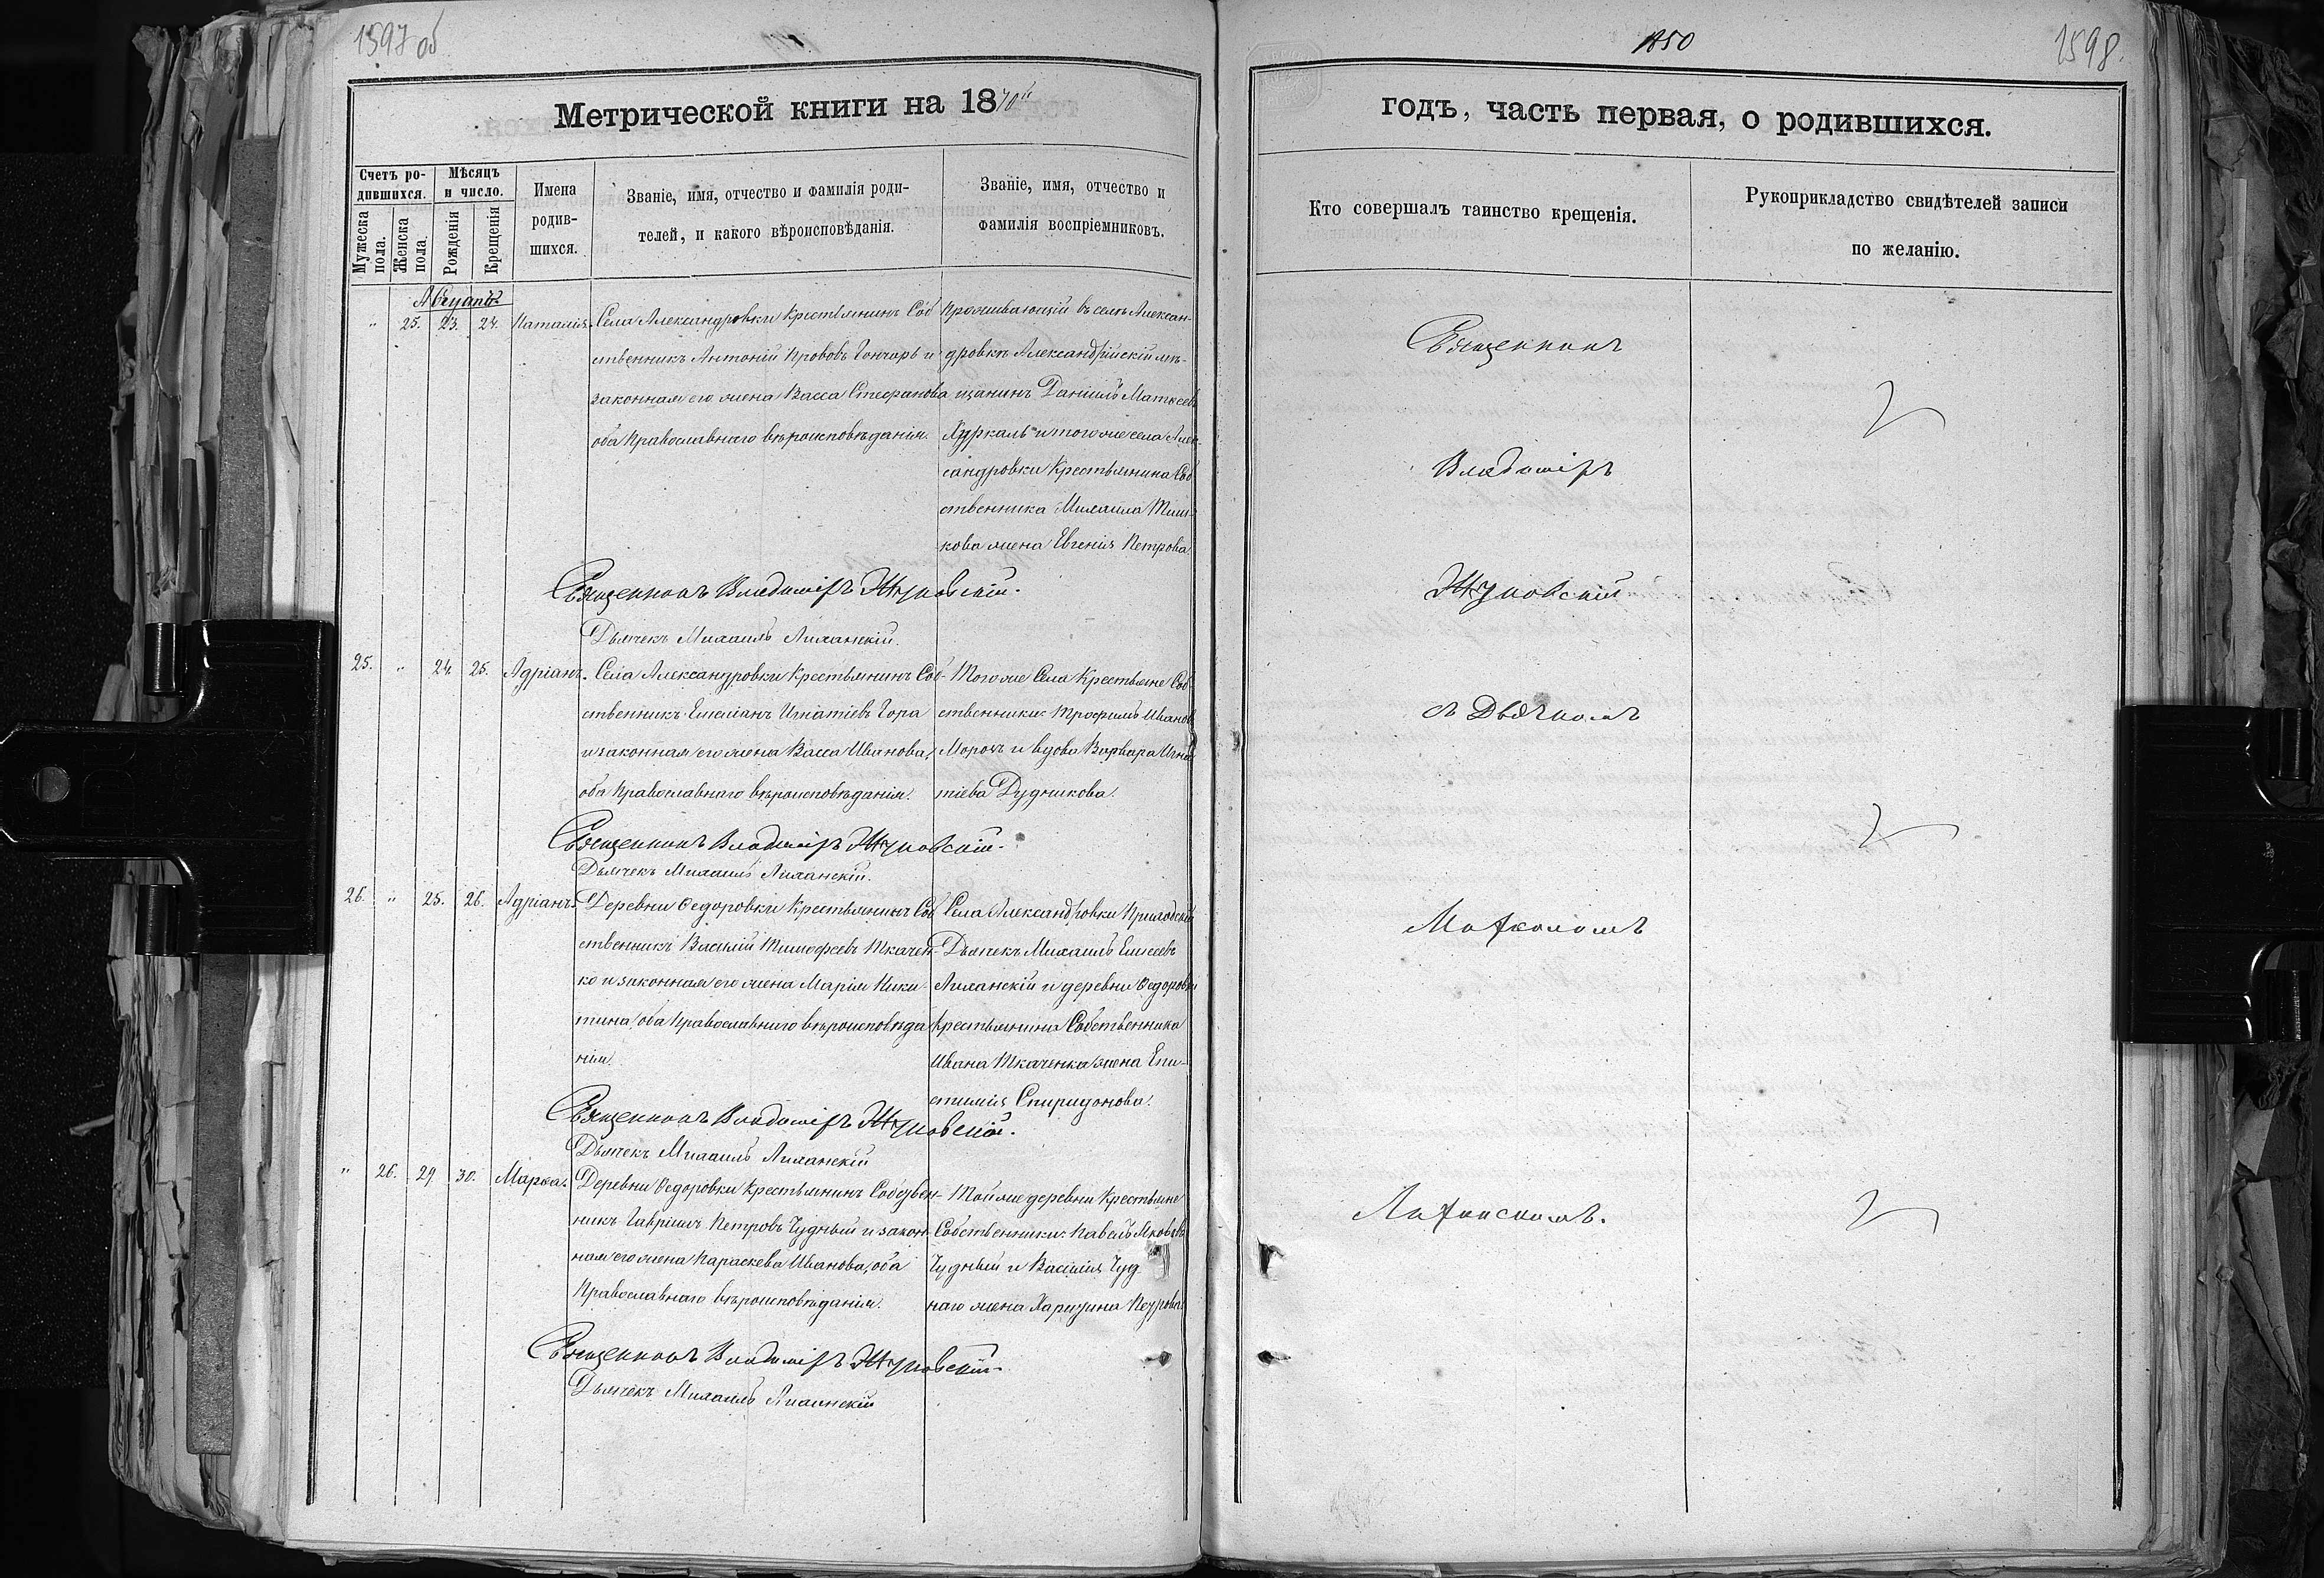 1597 об
Метрической книги на 1870й
Счетъ ро-
дившихся.
Мѣсяцъ
и число.
Мужеска
пола.
Женска
пола.
Рожденія
Крещенія
Имена
родив-
шихся.
Званіе, имя, отчество и фамилія роди-
телей, и какого вѣроисповѣданія.
Званіе, имя, отчество и
фамилія воспріемниковъ.
Августъ
" 25. 23. 24. Наталія.
Села Александровки Крестьянинъ Соб
ственникъ Антоній Прововъ Гончаръ и
законная его жена Васса Стефанова
оба Православнаго вѣроисповѣданія.
Проживающій въ селѣ Алексан-
дровкѣ Александрійскій мѣ-
щанинъ Даніилъ Матѳеевъ
и того же села Алек-
сандровки Крестьянина Соб
ственника Михаила
кова жена Евгенія Петрова
Священникъ Владиміръ Жуковскій.
Дьячекъ Михаилъ Лиханскій.
25. " 24. 25. Адріанъ.
Села Александровки Крестьянинъ Соб-
ственникъ Емеліанъ Игнатіевъ Гора
и законная его жена Васса Иванова,
оба Православнаго вѣроисповѣданія.
Того же Села Крестьяне Соб-
ственники: Трофимъ Ивановъ
Морозъ и вдова Варвара Игна
тіева Дудникова.
Священникъ Владиміръ Жуковскій.
Дьячекъ Михаилъ Лиханскій.
26. " 25. 26. Адріанъ.
Деревни Ѳедоровки Крестьянинъ Соб
ственникъ Василій Тимофеевъ Ткачен-
ко и законная его жена Марія Ники
тина, оба Православнаго вѣроисповѣда
нія.
Села Александровки Приходскій
Дьячекъ Михаилъ Елисеевъ
Лиханскій и деревни Ѳедоровки
Крестьянина Собственника
Ивана Ткаченка жена Епи-
стимія Спиридонова.
Священникъ Владиміръ Жуковскій.
Дьячекъ Михаилъ Лиханскій
" 26. 29. 30. Марѳа.
Деревни Ѳедоровки Крестьянинъ Собствен-
никъ Гавріилъ Петровъ Чудный и закон
ная его жена Параскева Иванова, оба
Православнаго вѣроисповѣданія.
Той же деревни Крестьяне
Собственники: Павелъ Яковлевъ
Чудный и Василія Чуд
наго жена Харитина Петрова.
Священникъ Владиміръ Жуковскій.
Дьячекъ Михаилъ Лиханскій
1850
1598.
годъ, часть первая, о родившихся.
Кто совершалъ таинство крещенія.
Рукоприкладство свидѣтелей записи
по желанію.
Священникъ
Владиміръ
Жуковскій
съ Дьячкомъ
Михаиломъ
Лиханскимъ.